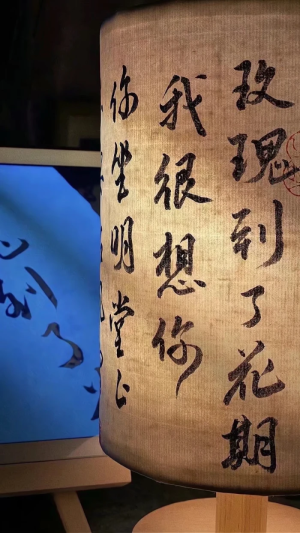 玫瑰到了花期
我很想你
你坐明堂上
到了